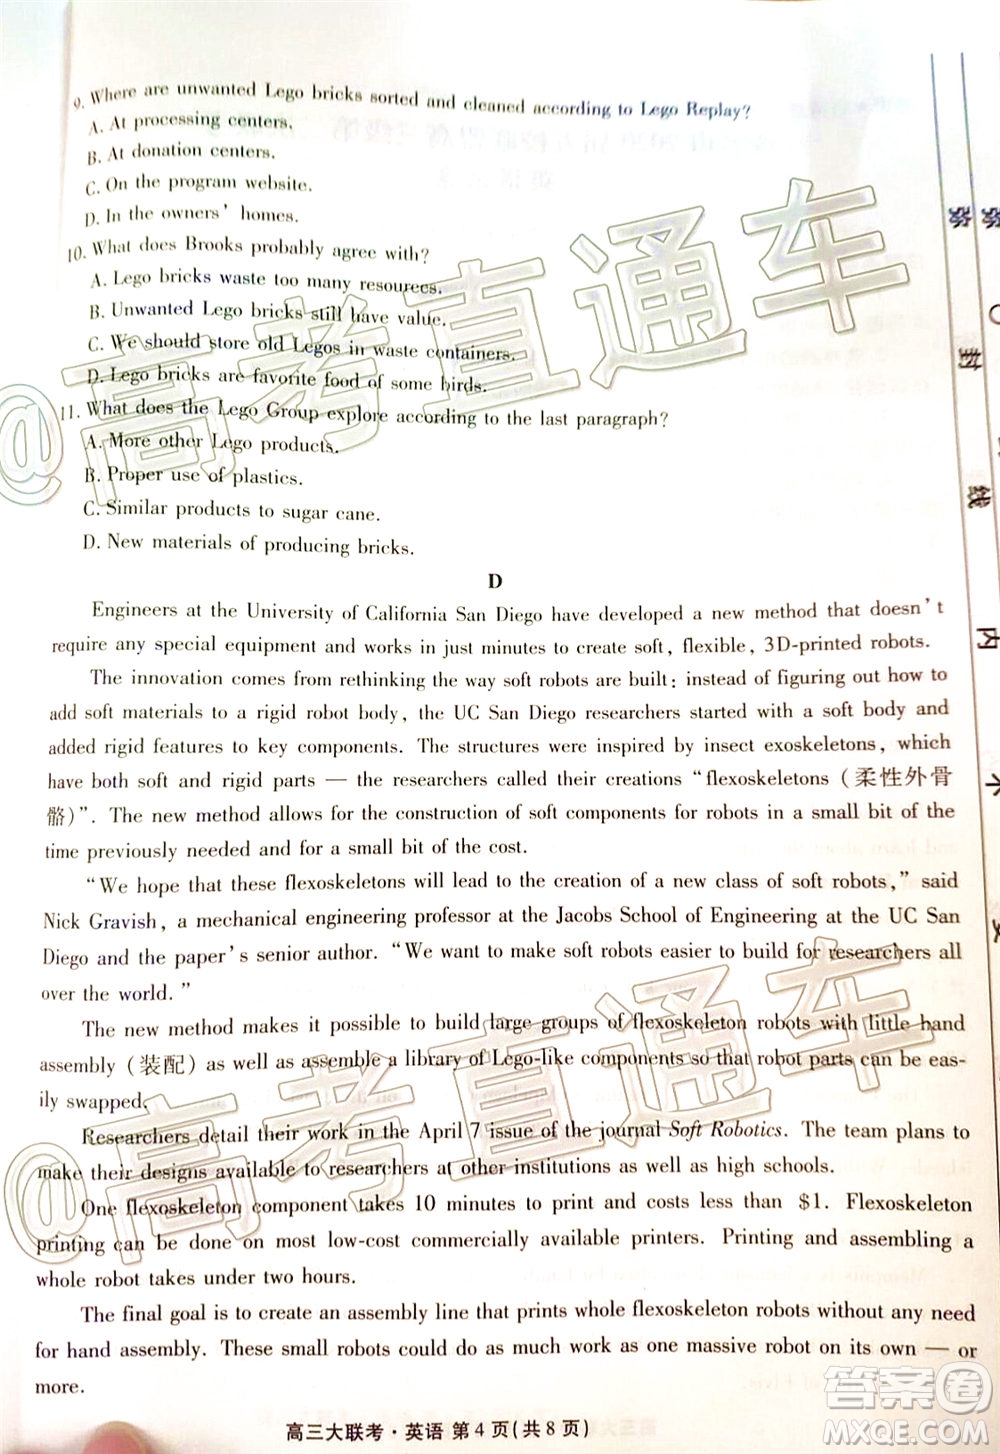 9. Where are unwanted Lego bricks sorted and cleaned according to Lego Replay?
A. At processing centers.
B. At donation centers.
C. On the program website.
D. In the owners' homes.
10. What does Brooks probably agree with?
A. Lego bricks waste too many resources.
B. Unwanted Lego bricks still have value.
C. We should store old Legos in waste containers.
D. Lego bricks are favorite food of some birds.
11. What does the Lego Group explore according to the last paragraph?
A. More other Lego products.
B. Proper use of plastics.
C. Similar products to sugar cane.
D. New materials of producing bricks.
D
Engineers at the University of California San Diego have developed a new method that doesn't
require any special equipment and works in just minutes to create soft, flexible, 3D-printed robots.
The innovation comes from rethinking the way soft robots are built: instead of figuring out how to
add soft materials to a rigid robot body, the UC San Diego researchers started with a soft body and
added rigid features to key components. The structures were inspired by insect exoskeletons, which
have both soft and rigid parts — the researchers called their creations "flexoskeletons (柔性外骨
骼)". The new method allows for the construction of soft components for robots in a small bit of the
time previously needed and for a small bit of the cost.
"We hope that these flexoskeletons will lead to the creation of a new class of soft robots," said
Nick Gravish, a mechanical engineering professor at the Jacobs School of Engineering at the UC San
Diego and the paper's senior author. "We want to make soft robots easier to build for researchers all
over the world."
The new method makes it possible to build large groups of flexoskeleton robots with little hand
assembly (装配) as well as assemble a library of Lego-like components so that robot parts can be eas-
ily swapped.
Researchers detail their work in the April 7 issue of the journal Soft Robotics. The team plans to
make their designs available to researchers at other institutions as well as high schools.
One flexoskeleton component takes 10 minutes to print and costs less than $1. Flexoskeleton
printing can be done on most low-cost commercially available printers. Printing and assembling a
whole robot takes under two hours.
The final goal is to create an assembly line that prints whole flexoskeleton robots without any need
for hand assembly. These small robots could do as much work as one massive robot on its own — or
more.
高三大联考·英语 第4页(共8页)
弥
弥
封
线
内
不
@高考直通车
@高考直通车
答案圈
MXQE.COM